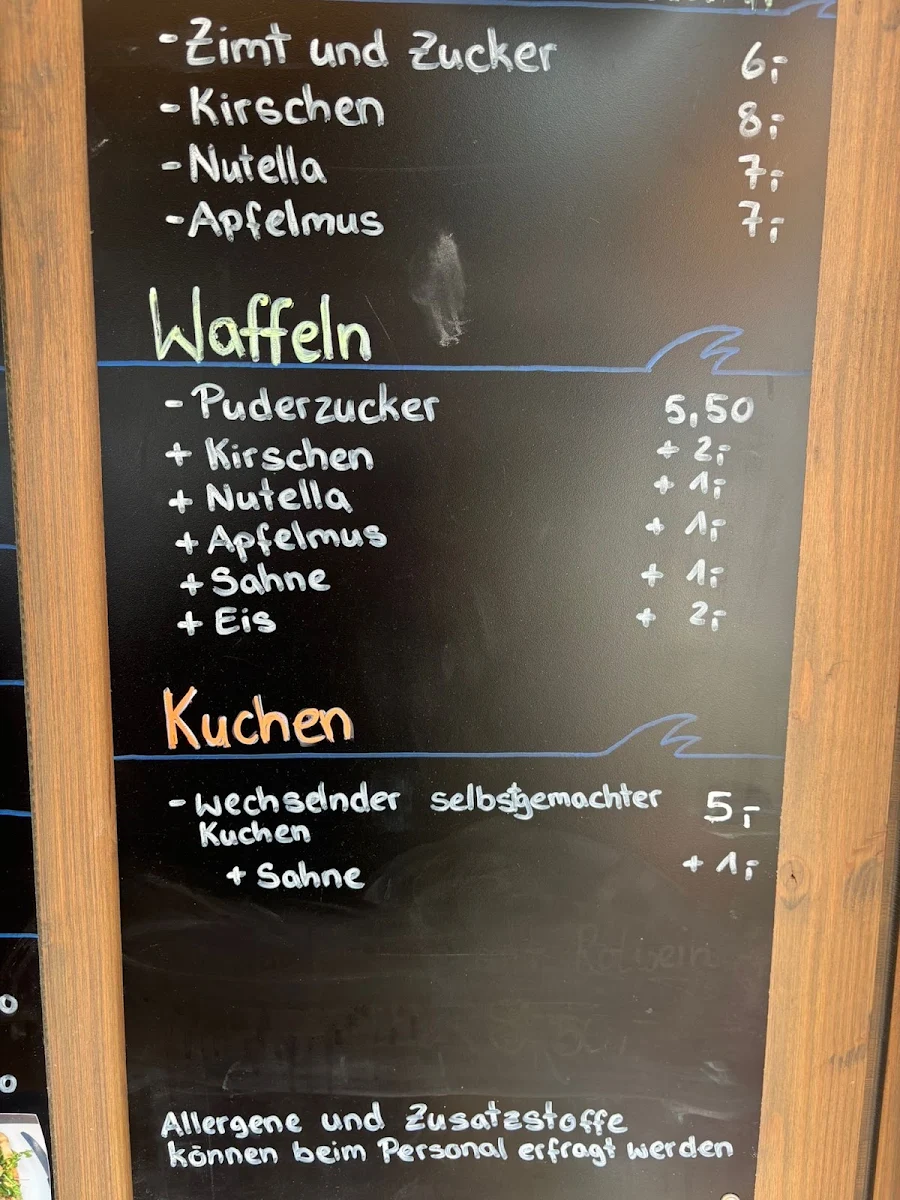 - Zimt und Zucker 6,-
- Kirschen 8,-
- Nutella 7,-
- Apfelmus 7,-
Waffeln
- Puderzucker 5,50
+ Kirschen + 2,-
+ Nutella + 1,-
+ Apfelmus + 1,-
+ Sahne + 1,-
+ Eis + 2,-
Kuchen
- Wechselnder selbstgemachter 5,-
Kuchen
+ Sahne + 1,-
Rotwein
Allergene und Zusatzstoffe
können beim Personal erfragt werden